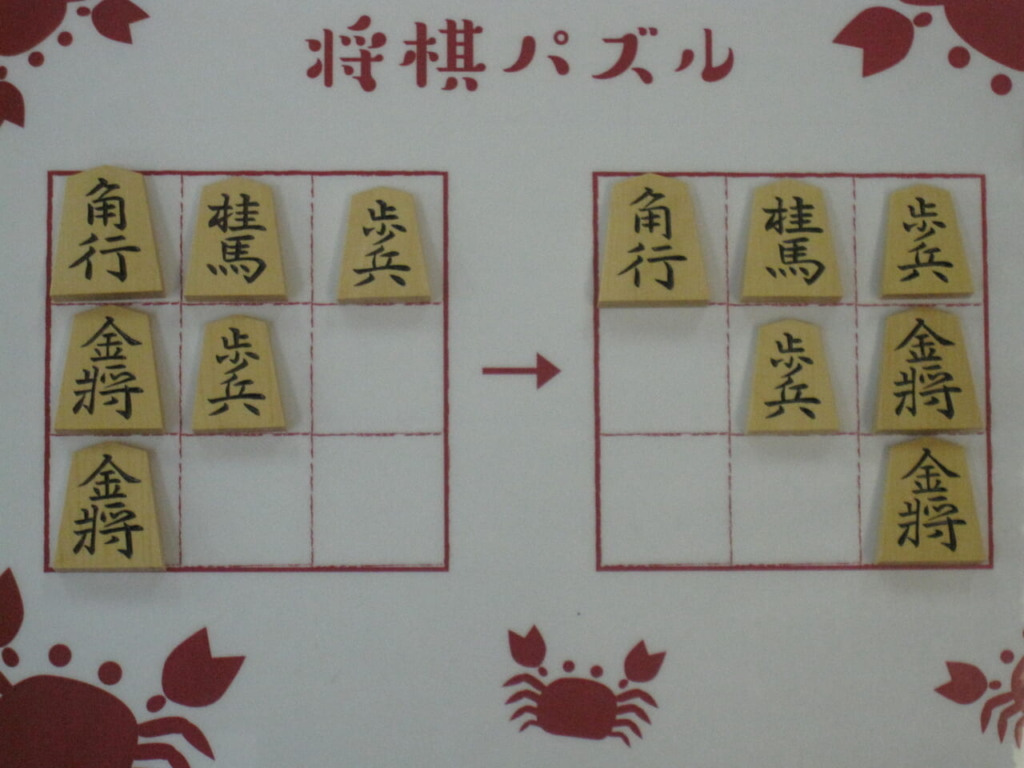 将棋パズル
角行 桂馬 歩兵 角行 桂馬 歩兵
金將 歩兵 歩兵 金將
金將 金將